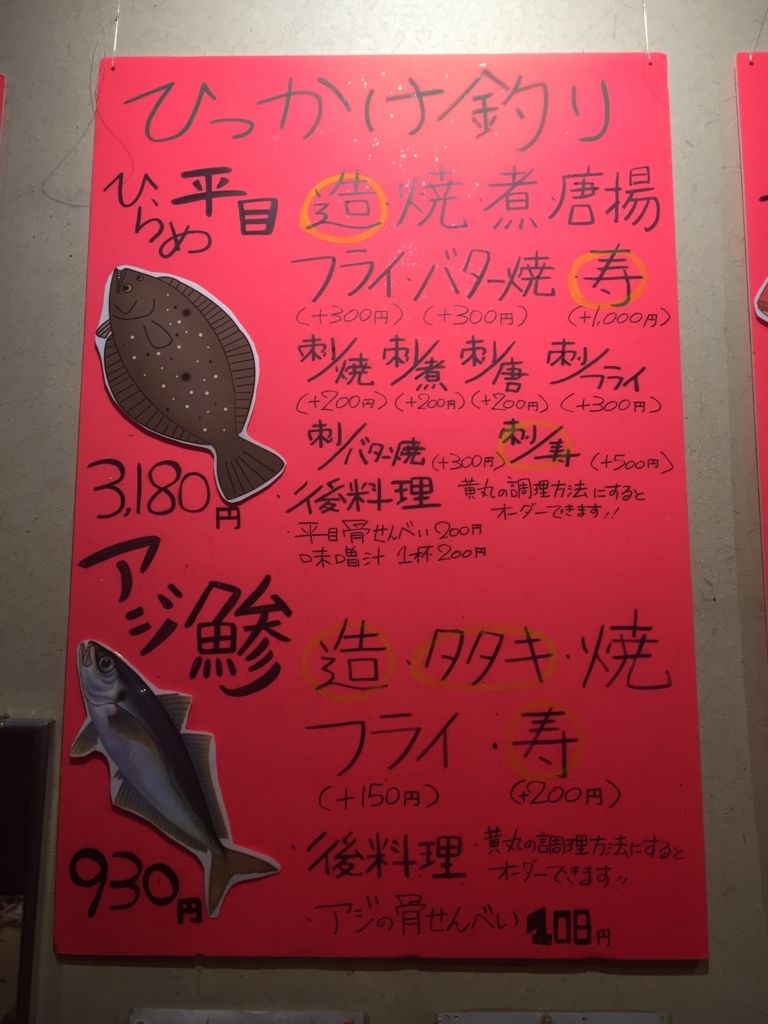 ひっかけ釣り
ひらめ 平目 造・焼・煮・唐揚
フライ・バター焼・寿
(+300円) (+300円) (+1,000円)
刺/焼 刺/煮 刺/唐 刺/フライ
(+200円) (+200円) (+200円) (+300円)
刺/バター焼 (+300円) 刺/寿 (+500円)
3,180円
後料理 黄丸の調理方法にすると
オーダーできます!!
平目骨せんべい 200円
味噌汁 1杯 200円
アジ 鯵 造・タタキ・焼
フライ・寿
(+150円) (+200円)
930円
・後料理・黄丸の調理方法にすると
オーダーできます!!
・アジの骨せんべい 108円